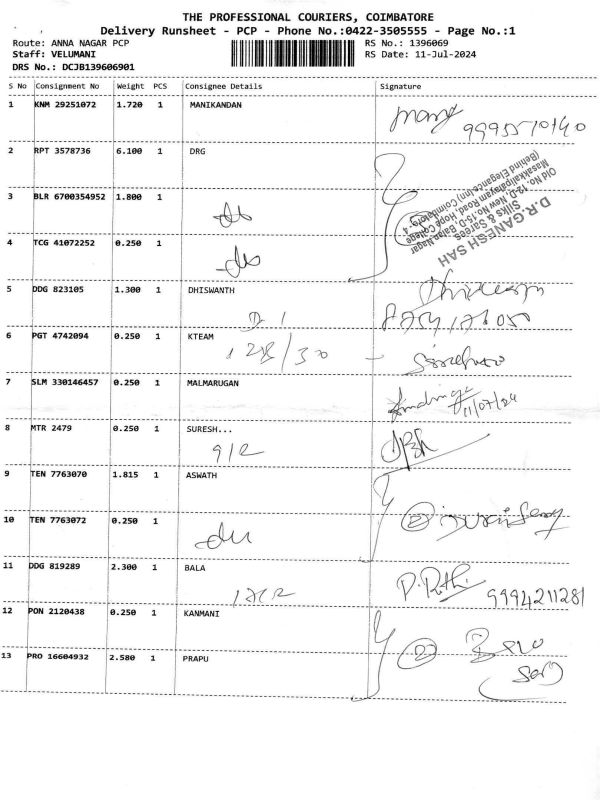 THE PROFESSIONAL COURIERS, COIMBATORE
Delivery Runsheet - PCP - Phone No.:0422-3505555 - Page No.:1
Route: ANNA NAGAR PCP
RS No.: 1396069
Staff: VELUMANI
RS Date: 11-Jul-2024
DRS No.: DCJB139606901
S No Consignment No Weight PCS Consignee Details Signature
1 KNM 29251072 1.720 1 MANIKANDAN
2 RPT 3578736 6.100 1 DRG
D.R.GANESH SAH
Silks & Sarees
Old No.12-D, New No.15-D, Balan Nagar
Masakkalipalayam Road, Hope College
(Behind Elegance Inn) Coimbatore - 4
3 BLR 6700354952 1.800 1
4 TCG 41072252 0.250 1
5 DDG 823105 1.300 1 DHISWANTH
6 PGT 4742094 0.250 1 KTEAM
7 SLM 330146457 0.250 1 MALMARUGAN
11/07/24
8 MTR 2479 0.250 1 SURESH...
9 TEN 7763070 1.815 1 ASWATH
10 TEN 7763072 0.250 1
2
11 DDG 819289 2.300 1 BALA
9994211281
12 PON 2120438 0.250 1 KANMANI
2
13 PRO 16604932 2.580 1 PRAPU